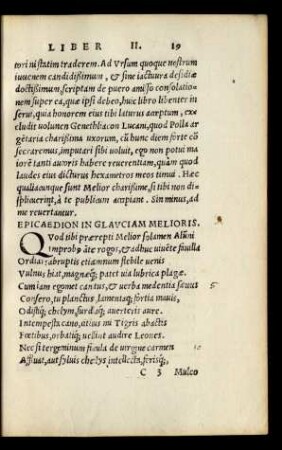 LIBER II. 19
tori ni statim traderem. Ad Vrsum quoque nostrum
iuuenem candidißimum, & sine iactura desidiæ
doctißimum, scriptam de puero amisso consolatio-
nem super ea, quæ ipsi debeo, huic libro libenter in
serui, quia honorem eius tibi laturus acceptum, ex
cludit uolumen Genethliacon Lucani, quod Polla ar
gētaria charißima uxorum, cū hunc diem forte cō
secraremus, imputari sibi uoluit, ego non potui ma
iorē tanti autoris habere reuerentiam, quàm quod
laudes eius dicturus hexametros meos timui. Hæc
qualiacunque sunt Melior charißime, si tibi non di-
splicuerint, à te publicum accipiant. Sin minus, ad
me reuertantur.
EPICAEDION IN GLAVCIAM MELIORIS.
QVod tibi prærepti Melior solamen Alumni
Improbꝰ āte rogos, & adhuc uiuēte fauilla
Ordiar? abruptis etiamnum flebile uenis
Vulnus hiat, magnæq; patet uia lubrica plagæ.
Cum iam egomet cantus, & uerba medentia sæuus 5
Confero, tu planctus, lamentaq; fortia mauis,
Odistiq; chelyn, surdaq; auerteris aure.
Intempesta cano, citius me Tigris abactis
Fœtibus, orbatiq; uelint audire Leones.
Nec si tergeminum sicula de uirgine carmen 10
Affluat, aut syluis chelys intellecta, ferisq;,
C 3 Mulceo